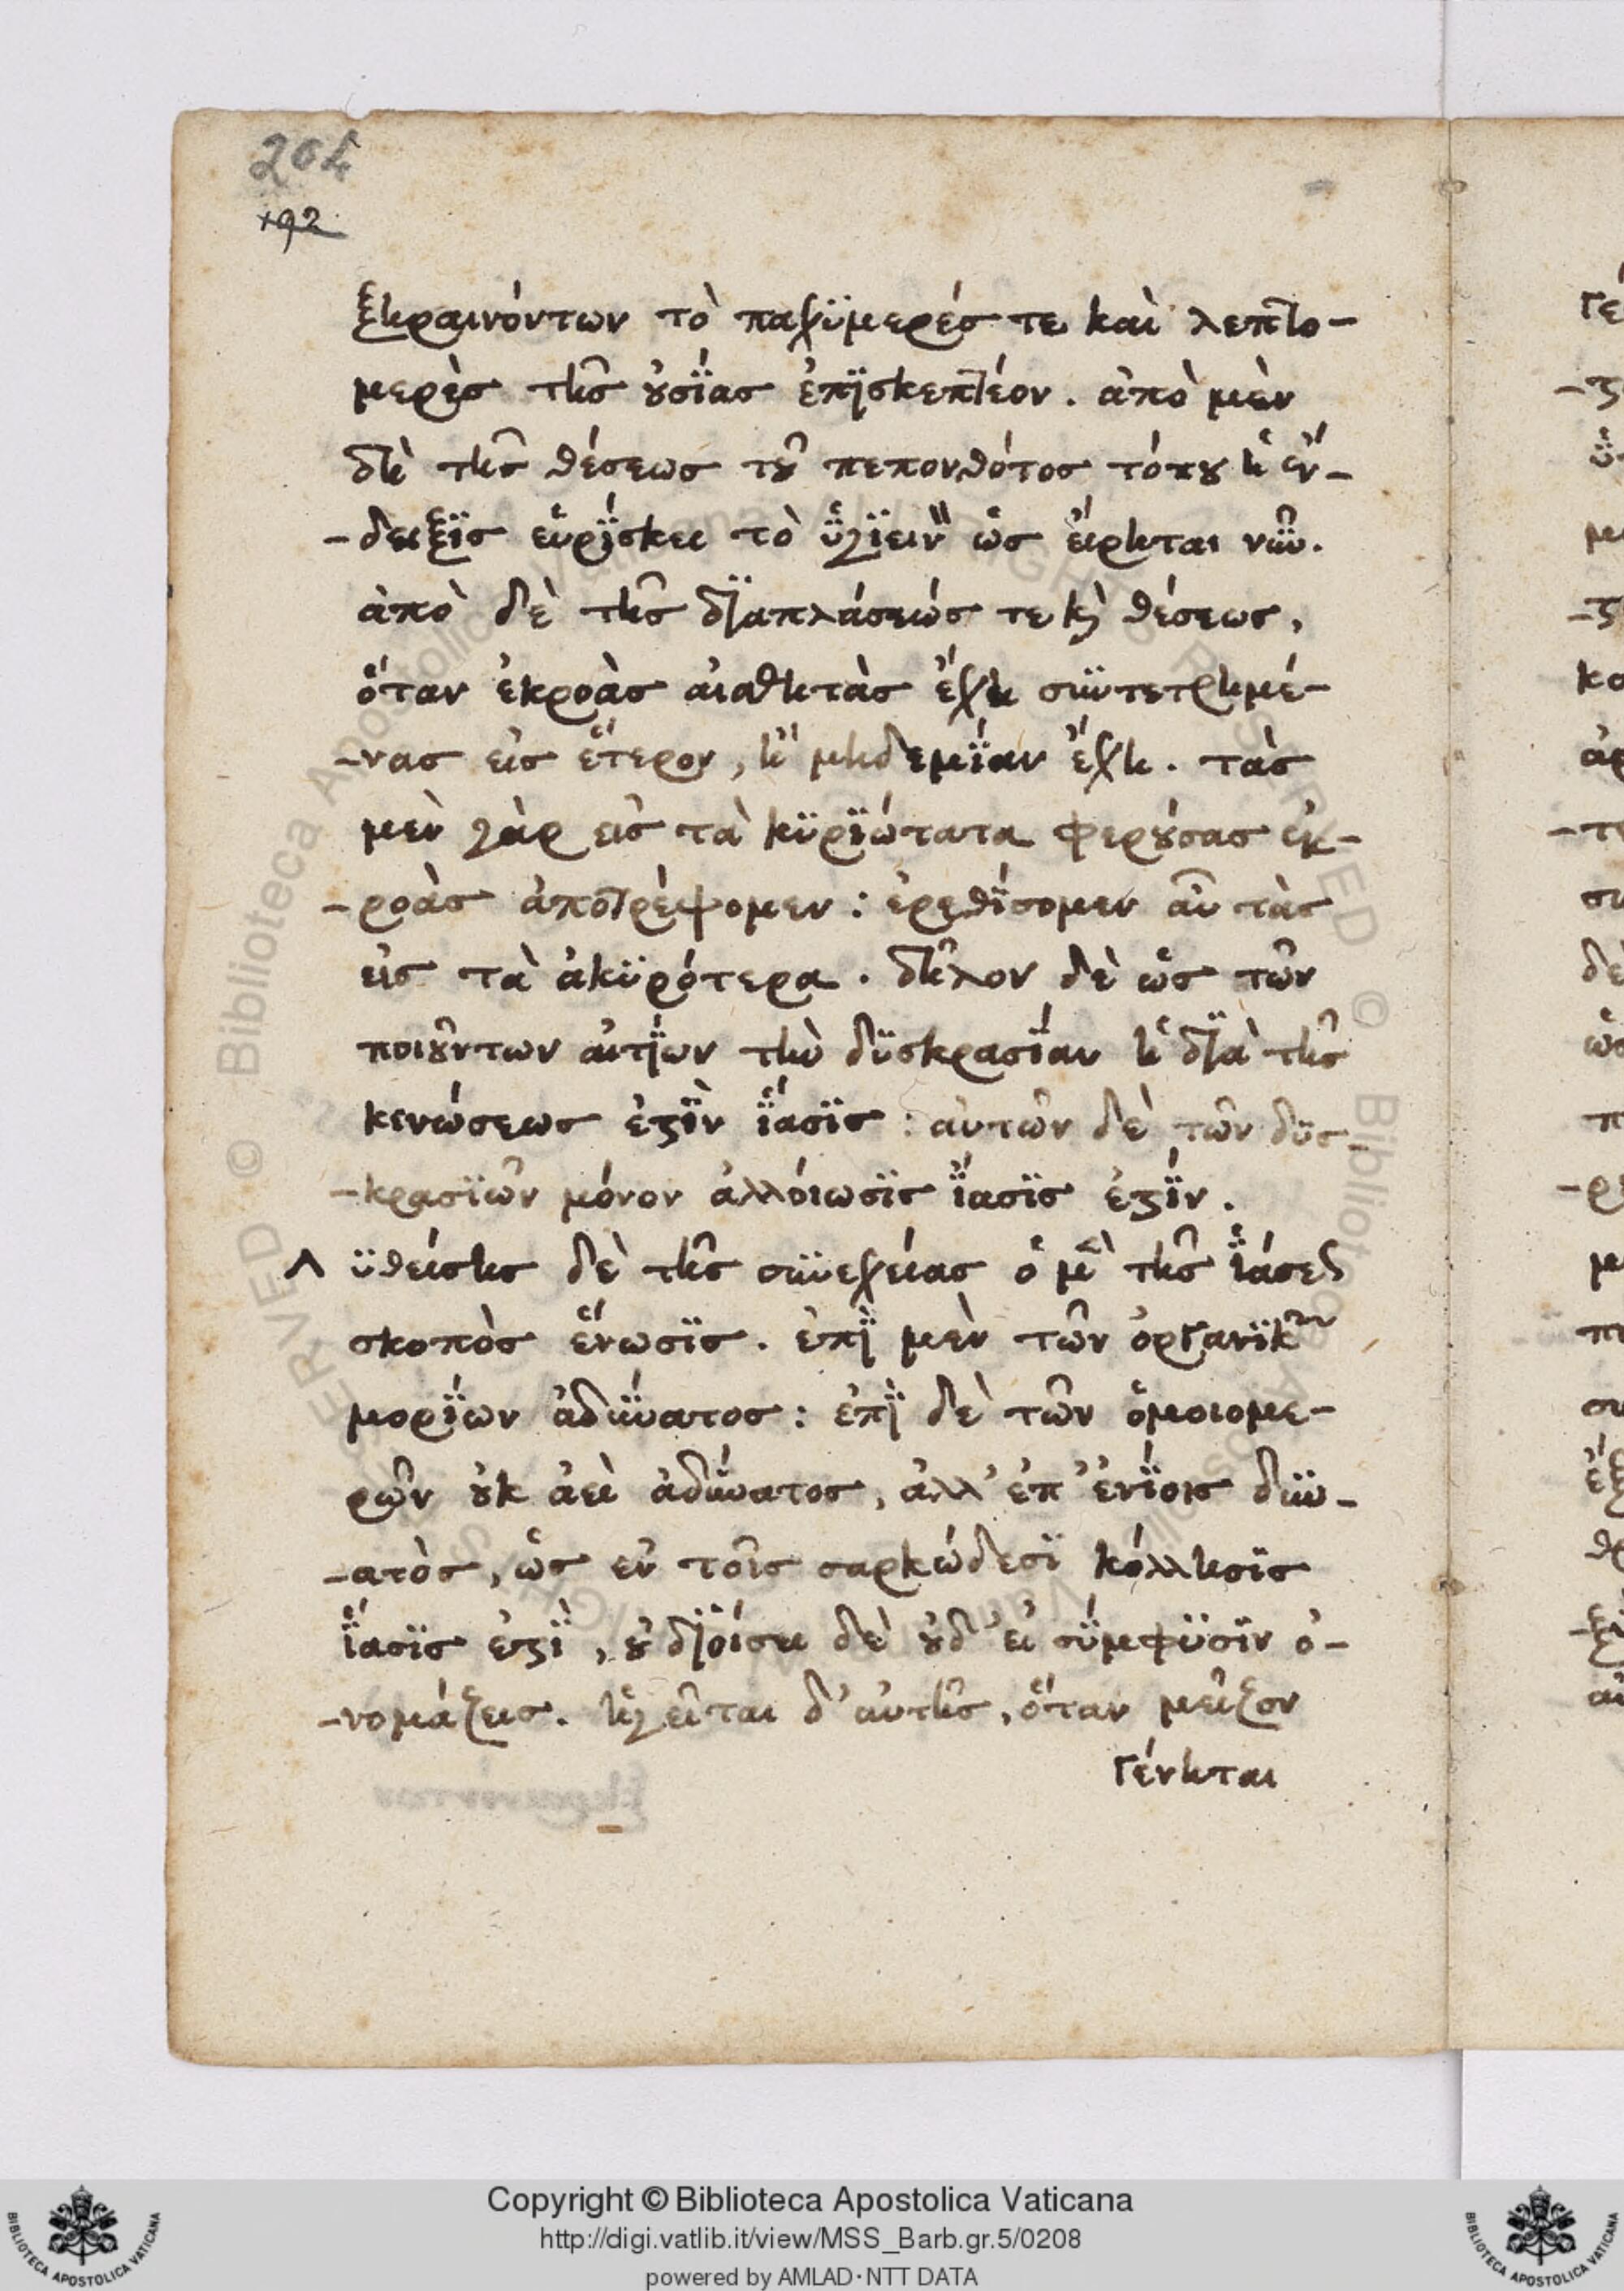 204
192
ξηραινόντων τὸ παχϋμερές τε καὶ λεπτο-
μερὲς τῆς οὐσΐας ἐπϊσκεπτέον. ἀπὸ μὲν
δὴ τῆς θέσεως τοῦ πεπονθότος τόπου ἡ ἔν-
-δειξϊς εὑρΐσκει τὸ ὑγϊειν" ὡς εἴρηται νῦν.
ἀπὸ δὲ τῆς δϊαπλάσεώς τε κὴ θέσεως,
ὅταν ἐκροὰς αἰσθητὰς ἔχη συντετρημέ-
-νας εἰς ἕτερον, ἢ μηδεμΐαν ἔχη. τὰς
μὲν γὰρ εἰς τὰ κϋρϊώτατα φερούσας ἐκ-
-ροὰς ἀποτρέψομεν: ἐρεθΐσομεν αὖ τὰς
εἰς τὰ ἀκϋρότερα. δῆλον δὲ ὡς τῶν
ποιούντων αἰτΐων τὴν δϋσκρασΐαν ἡ δϊὰ τῆς
κενώσεως ἐστῒν ἴασϊς: αὐτῶν δὲ τῶν δϋσ-
-κρασϊῶν μόνον ἀλλόιωσϊς ἴασϊς ἐστΐν.
Λ ϋθείσης δὲ τῆς συνεχείας ὁ μὲν τῆς ἰάσεως
σκοπὸς ἕνωσϊς. ἐπῒ μὲν τῶν ὀργανϊκῶν
μορΐων ἀδύνατος: ἐπῒ δὲ τῶν ὁμοιομε-
ρῶν οὐκ ἀεὶ ἀδύνατος, ἀλλ' ἐπ' ἐνΐοις δυν-
-ατὸς, ὡς ἐν τοῖς σαρκώδεσϊ κόλλησϊς
ἴασϊς ἐστῒ, οὐ δϊοίσει δὲ οὐδ' εἰ σύμφϋσϊν ὀ-
-νομάζεις. ἡγεῖται δ' αὐτῆς, ὅταν μεῖζον
γένηται
Copyright © Biblioteca Apostolica Vaticana
http://digi.vatlib.it/view/MSS_Barb.gr.5/0208
powered by AMLAD·NTT DATA